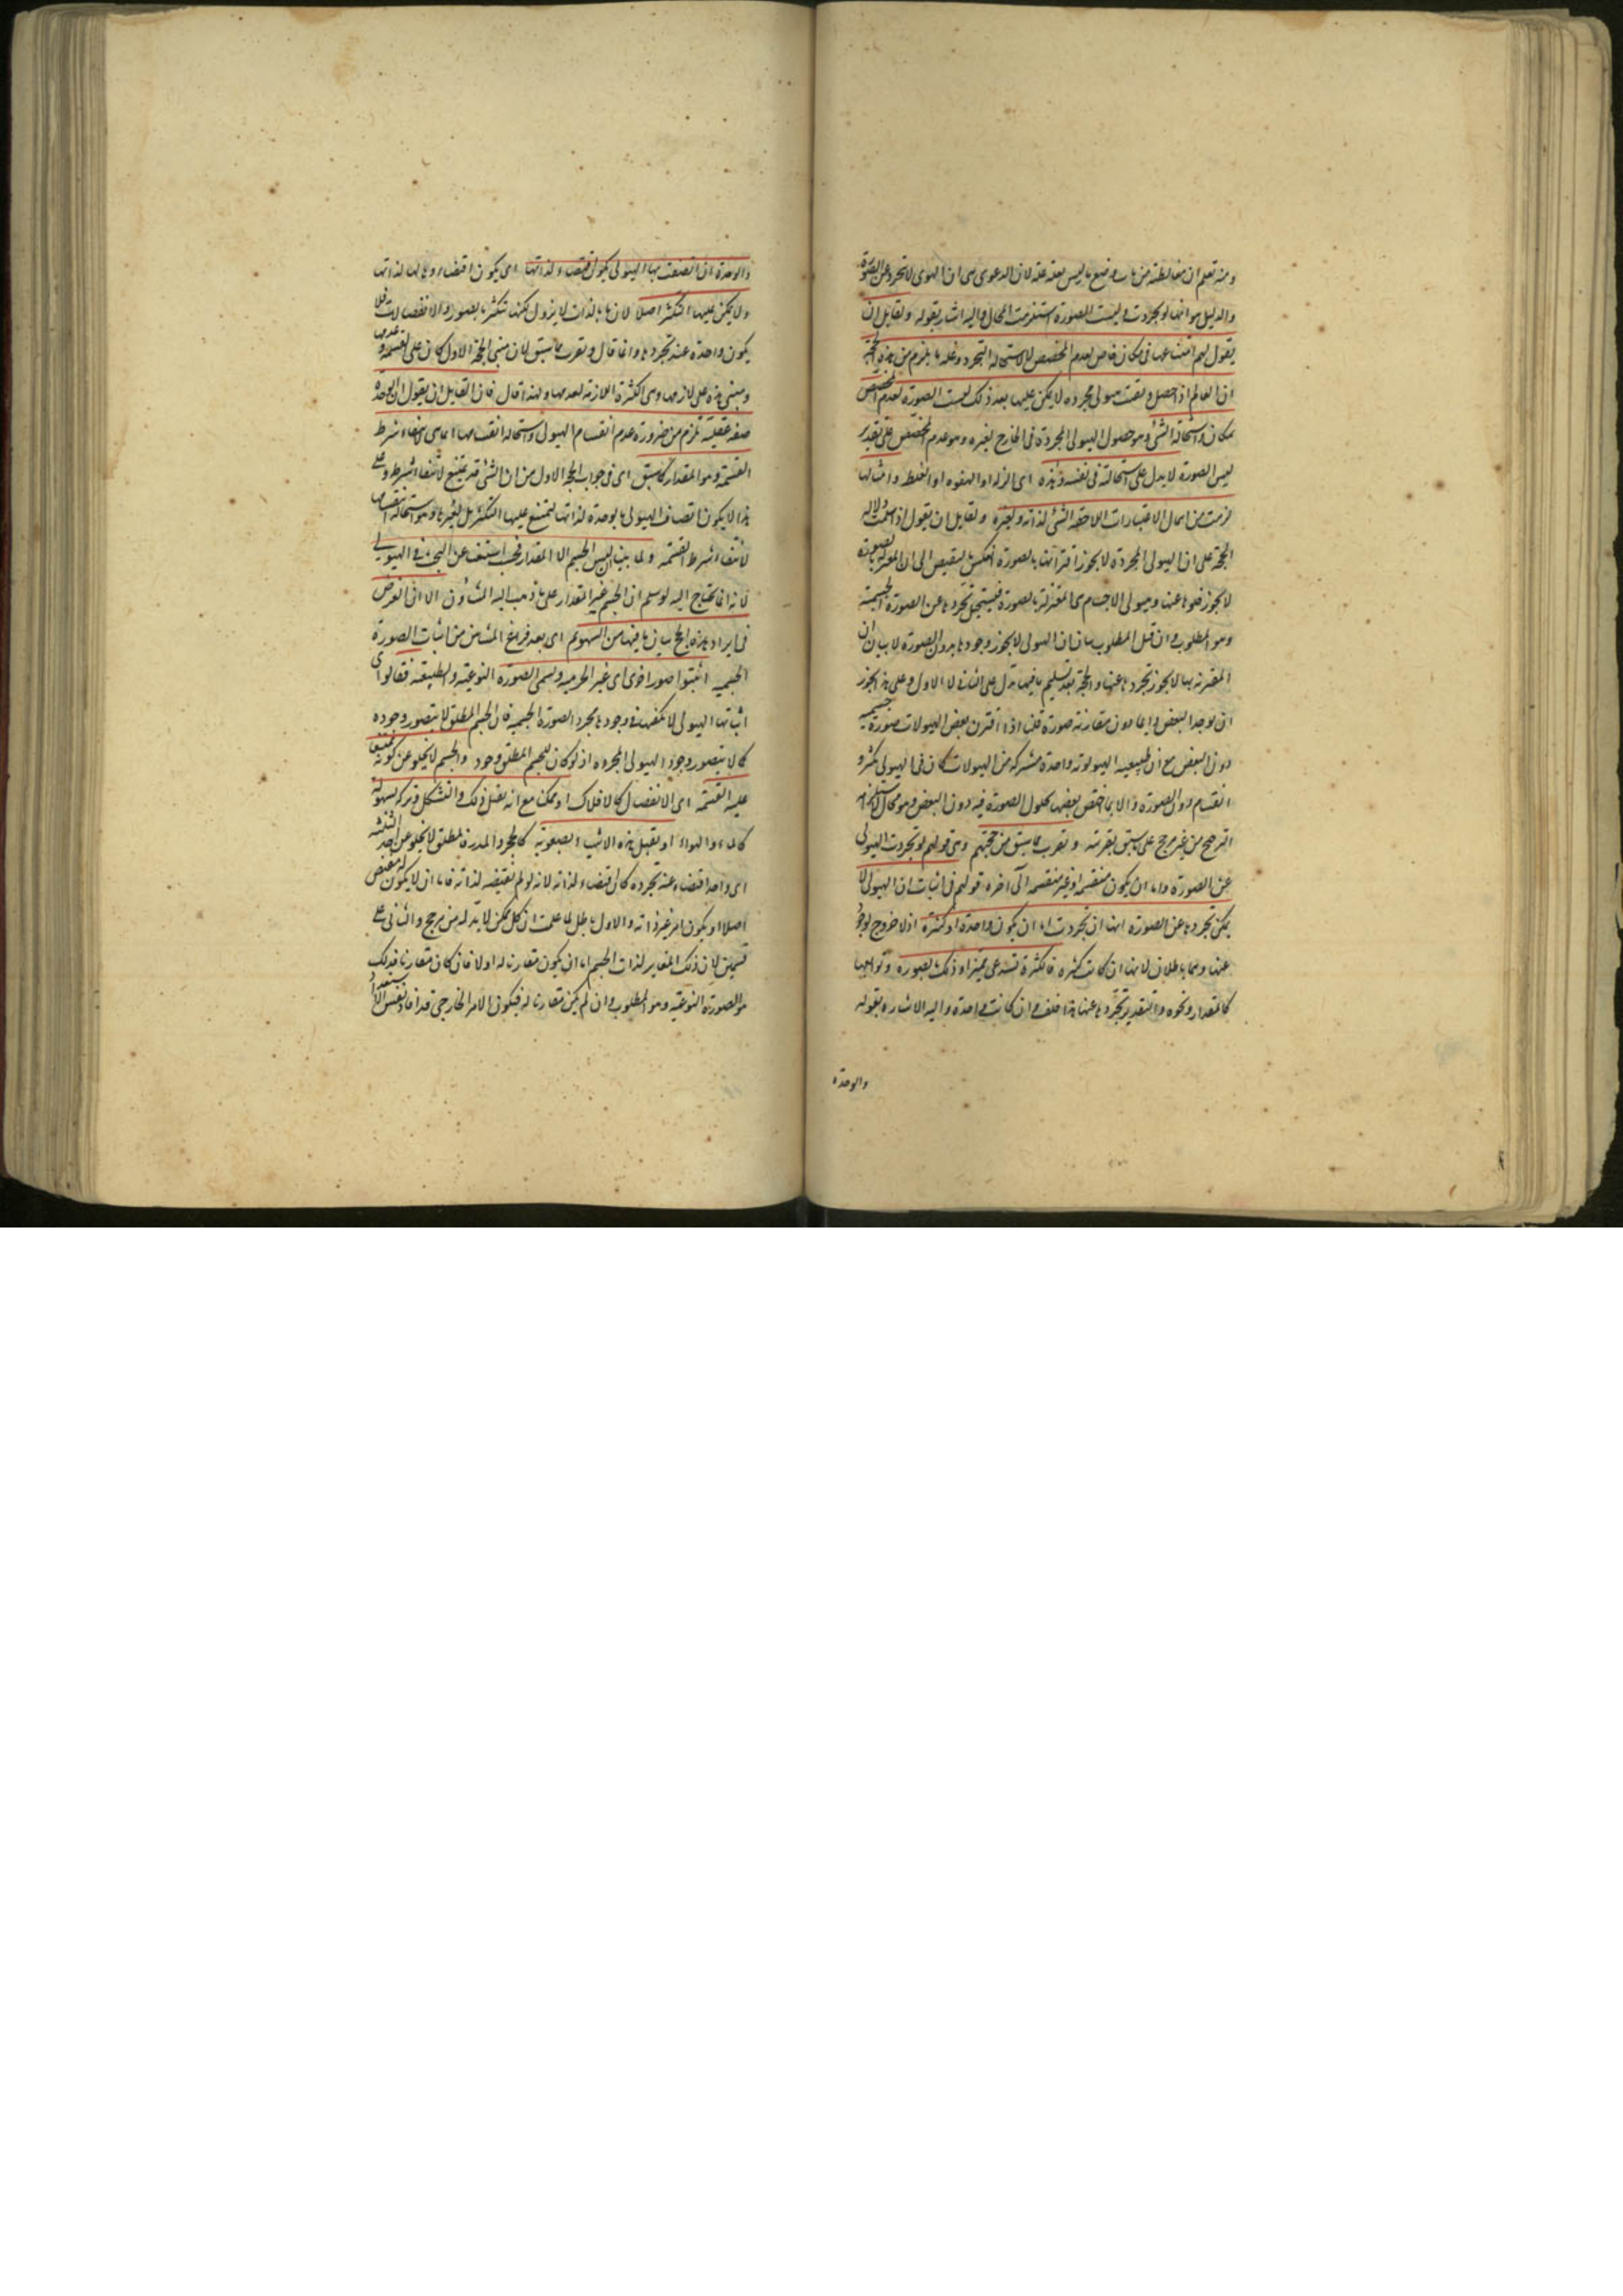 ومنه تعلم ان مغالطته من باب وضع ما ليس بعلة علة لان الدعوى هى ان الهيولى لا تتجرد عن الصورة
والدليل هو انها لو تجردت ولبست الصورة استلزمت المحال واليه اشار بقوله ولقايل ان
يقول لهم امتناعها فى مكان خاص لعدم المخصص لا لاستحالة التجرد وغلة ما يلزم من هذه الحجة
ان العالم اذا حصل وبقت هيولى مجردة لا يمكن عليها بعد ذلك لبست الصورة لعدم المخصص
بمكان واستحالة الشئ وهو حصول الهيولى المجردة فى الخارج لغيره وهو عدم المخصص على تقدير
لبس الصورة لا يدل على استحالته فى نفسه وهذه اى الزلة او الهفوه او الغلط وامثالها
لزمت من اهمال الاعتبارات اللاحقة الشئ لذاته ولغيره ولقايل ان يقول اذا سلمت دلالة
الحجة على ان الهيولى المجردة لا يجوز اقترانها بالصورة انعكس بالنقيض الى ان المقترنة بالصورة
لا يجوز خلوها عنها وهيولى الاجسام هى المقترنة بالصورة فيستحيل تجردها عن الصورة الجسمية
وهو المطلوب وان قيل المطلوب بيان ان الهيولى لا يجوز وجودها بدون الصورة لا بيان ان
المقترنة بها لا يجوز تجردها عنها والحجة بعد تسليم ما فيها تدل على الثانى لا الاول وعلى هذا يجوز
ان يوجد البعض دايما دون مقارنة صورة قلنا اذا اقترن بعض الهيولات صورة جسمية
دون البعض مع ان طبيعية الهيولوية واحدة مشتركة من الهيولات كان فى الهيولى تكثر و
انقسام دون الصورة والا لما اختص بعضها بحلول الصورة فيه دون البعض وهو محال لاستلزامه
الترجح من غير مرجح على ما سبق تقريره ويقرب مما سبق من حجتهم وهى قولهم لو تجردت الهيولى
عن الصورة داما ان يكون منقسمة او غير منقسمة الى اخره قولهم فى اثبات ان الهيولى لا
يمكن تجردها عن الصورة انها ان تجردت اما ان يكون واحدة او كثيرة اذ لا خروج لوجود
عنها وهما باطلان لانها ان كانت كثيرة فالكثرة تستدعى مميزا وذلك بالصورة وتوابعها
كالمقدار ونحوه والتقدير تجردها عنها هذا خلف وان كانت واحدة واليه الاشارة بقوله
والوحدة
والوحدة ان اتصفت بها الهيولى يكون اقتضاء لذاتها اى يكون اقتضاؤها لها لذاتها
ولا يمكن عليها التكثر اصلا لان ما بالذات لا يزول لكنها تتكثر بالصور والانفصالات فلا
يكون واحدة عند تجردها وانما قال ويقرب مما سبق لان مبنى الحجة الاول كان على القسمة وعدمها
ومبنى هذه على لازمها وهى الكثرة اللازمة لعدمها ولهذا قال فان القايل ان يقول ان الوحدة
صفة عقلية تلزم من ضرورة عدم انقسام الهيولى واستحالة انقسامها انما هى لانتفاء شرط
القسمة وهو المقدار كما سبق اى فى جواب الحجة الاول من ان الشئ قد يمتنع لانتفاء شرطه وعلى
هذا لا يكون اتصاف الهيولى بالوحدة لذاتها ليمتنع عليها التكثر بل لغيرها وهو استحالة انقسامها
لانتفاء شرط القسمة ولما بينا ان ليس الجسم الا المقدار فحسب استغنى عن البحث فى الهيولى
لانه انما يحتاج اليه لو سلم ان الجسم غير المقدار على ما ذهب اليه المشاؤن الا ان الغرض
فى ايراد هذه الحج بيان ما فيها من السهو ثم اى بعد فراغ المشائين من اثبات الصورة
الجسمية اثبتوا صورا اخرى اى غير الجرمية وتسمى الصورة النوعية والطبيعية فقالوا فى
اثباتها الهيولى لا يكفيها فى وجودها مجرد الصورة الجسمية فان الجسم المطلق لا يتصور وجوده
كما لا يتصور وجود الهيولى المجردة اذ لو كان للجسم المطلق وجود والجسم لا يخلو عن كونه ممتنعا
عليه القسمة اى الانفصال كالافلاك او ممكن مع انه يقبل ذلك والتشكل وتركه بسهولة
كالماء والهواء او يقبل هذه الاشياء بصعوبة كالحجر والمدر فالمطلق لا يخلو عن احد الثلثة
اى واحد اقتضاء عند تجرده كان اقتضاء لذاته لانه لو لم تقتضيه لذاته فاما ان لا يكون له مقتض
اصلا او يكون امر غير ذاته والاول باطل لما علمت ان كل ممكن لا بد له من مرجح والثانى على
قسمين لان ذلك المغاير لذات الجسم اما ان يكون مقارنا له او لا فان كان مقارنا فذلك
هو الصورة النوعية وهو المطلوب وان لم يكن مقارنا له فيكون الامر الخارجى قد افاد نفس الاستعداد